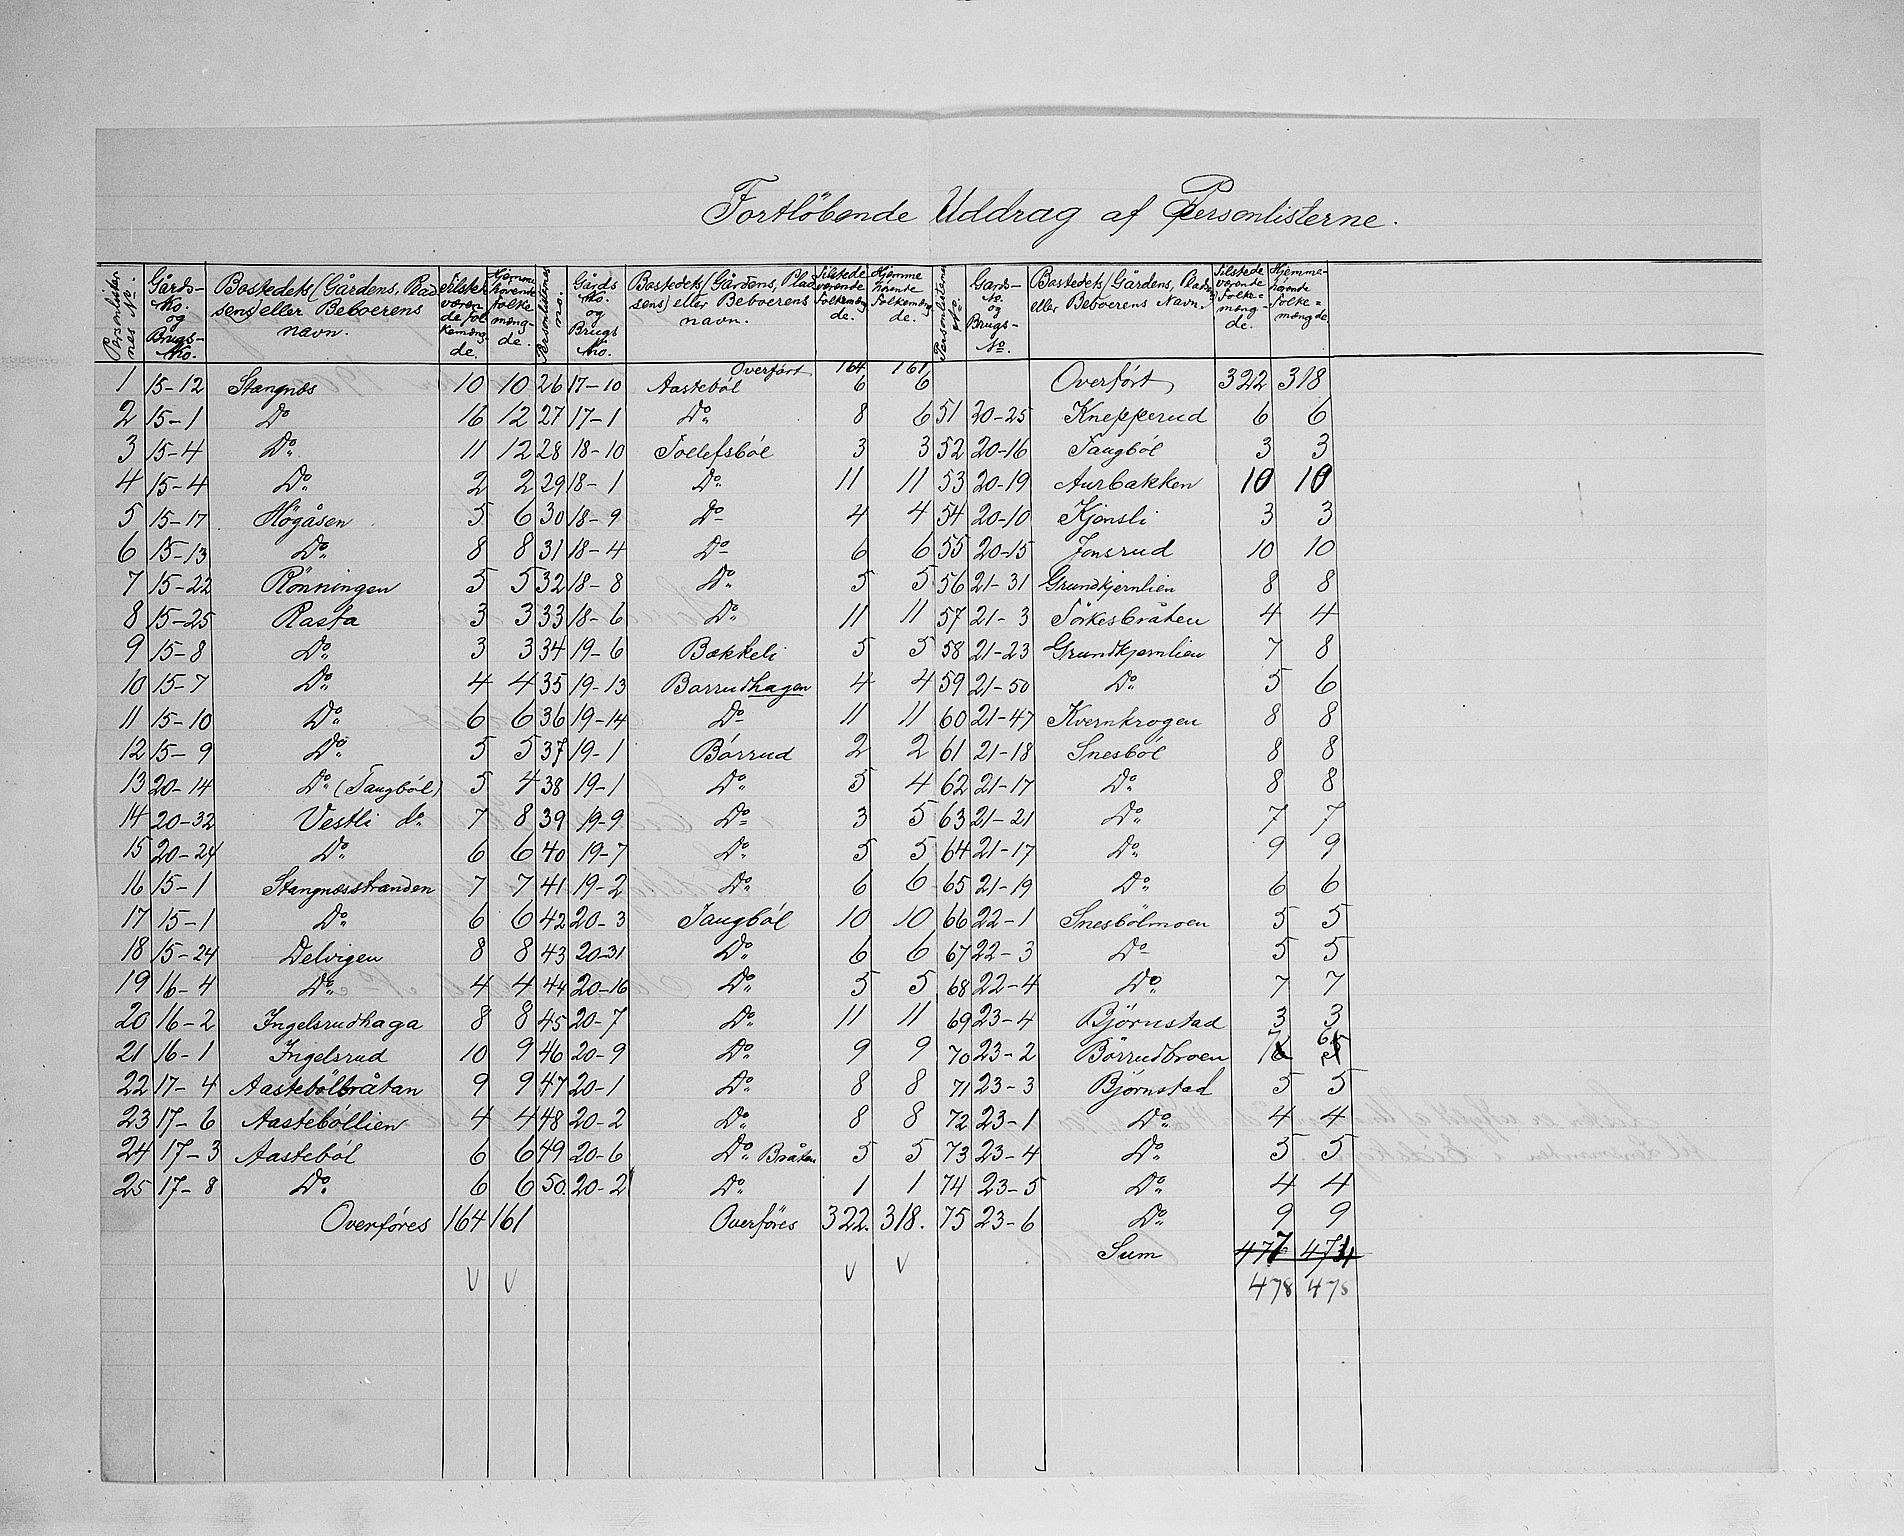 Fortløbende Uddrag af Personlisterne.
Personlister-nes No. | Gårds-No. og Brugs-No. | Bostedets (Gårdens, Pladsens) eller Beboerens navn. | Tilstedeværende Folkemængde. | Hjemmehørende folkemængde. | Personlisternes no. | Gårds No. og Brugs No. | Bostedets (Gårdens, Pladsens) eller Beboerens navn. | Tilstedeværende Folkemængde. | Hjemmehørende Folkemængde. | Personlisternes No. | Gards-No. og Brugs-No. | Bostedets (Gårdens, Pladsens) eller Beboerens Navn. | Tilstedeværende Folke=mængde. | Hjemme-hørende Folke=mængde
Overført 164 161
1 15-12 Stangnæs 10 10 26 17-10 Aastebøl 6 6 Overført 322 318
2 15-1 Do 16 12 27 17-1 Do 8 6 51 20-25 Knepperud 6 6
3 15-4 Do 11 12 28 18-10 Toelefsbøl 3 3 52 20-16 Taugbøl 3 3
4 15-4 Do 2 2 29 18-1 Do 11 11 53 20-19 Aurbakken 10 10
5 15-17 Högåsen 5 6 30 18-9 Do 4 4 54 20-10 Kjensli 3 3
6 15-13 Do 8 8 31 18-4 Do 6 6 55 20-15 Jonsrud 10 10
7 15-22 Rönningen 5 5 32 18-8 Do 5 5 56 21-31 Grundkjernlien 8 8
8 15-25 Rasta 3 3 33 18-6 Do 11 11 57 21-3 Törkesbråten 4 4
9 15-8 Do 3 3 34 19-6 Bækkeli 5 5 58 21-23 Grundkjernlien 7 8
10 15-7 Do 4 4 35 19-13 Borrudhagen 4 4 59 21-50 Do 5 6
11 15-10 Do 6 6 36 19-14 Do 11 11 60 21-47 Kvernkrogen 8 8
12 15-9 Do 5 5 37 19-1 Børrud 2 2 61 21-18 Snesbøl 8 8
13 20-14 Do (Taugbøl) 5 4 38 19-1 Do 5 4 62 21-17 Do 8 8
14 20-32 Vestli do 7 8 39 19-9 Do 3 5 63 21-21 Do 7 7
15 20-24 Do 6 6 40 19-7 Do 5 5 64 21-17 Do 9 9
16 15-1 Stangnæsstranden 7 7 41 19-2 Do 6 6 65 21-19 Do 6 6
17 15-1 Do 6 6 42 20-3 Taugbøl 10 10 66 22-1 Snesbølmoen 5 5
18 15-24 Delvigen 8 8 43 20-31 Do 6 6 67 22-3 Do 5 5
19 16-4 Do 4 4 44 20-16 Do 5 5 68 22-4 Do 7 7
20 16-2 Ingelsrudhaga 8 8 45 20-7 Do 11 11 69 23-4 Björnstad 3 3
21 16-1 Ingelsrud 10 9 46 20-9 Do 9 9 70 23-2 Börrudbroen
22 17-4 Aastebölbråtan 9 9 47 20-1 Do 8 8 71 23-3 Björnstad 5 5
23 17-6 Aastebøllien 4 4 48 20-2 Do 8 8 72 23-1 Do 4 4
24 17-3 Aastebøl 6 6 49 20-6 Do Bråten 5 5 73 23-4 Do 5 5
25 17-8 Do 6 6 50 20-21 Do 1 1 74 23-5 Do 4 4
Overføres 164 161 Overføres 322. 318. 75 23-6 Do 9 9
Sum 477 474
478 478